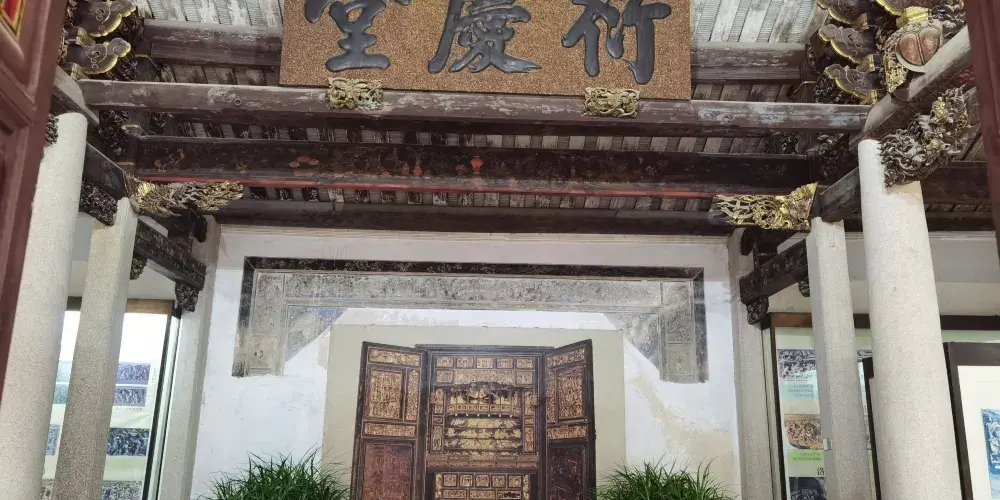 衍慶堂